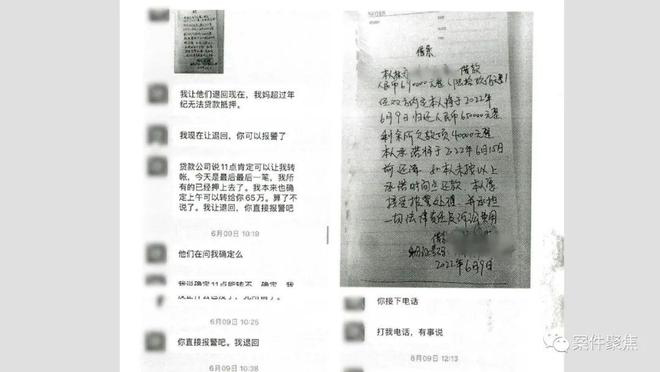 我让他们退回现在，我妈超过年
纪无法贷款抵押。
我现在让退回，你可以报警了
贷款公司说11点肯定可以让我转
帐，今天是最后最后一笔，我所
有的已经押上去了。我本来也确
定上午可以转给你65万。算了不
说了。让退回，你直接报警吧
6月09日 10:19
他们在问我确定么
6月09日 10:25
你直接报警吧。我退回
6月09日 10:38
借条
本人 借款
人民币690000元整
6月9日归还人民币650000元整
剩余所欠款项40000元整
本人承诺将于2022年6月15日
前还清，如本人未按以上
承诺时间点还款，本人愿
接受报警处理，并承担
一切法律责任及诉讼费用
2022年6月9日
你接下电话
打我电话，有事说
6月09日 12:13
案件聚焦